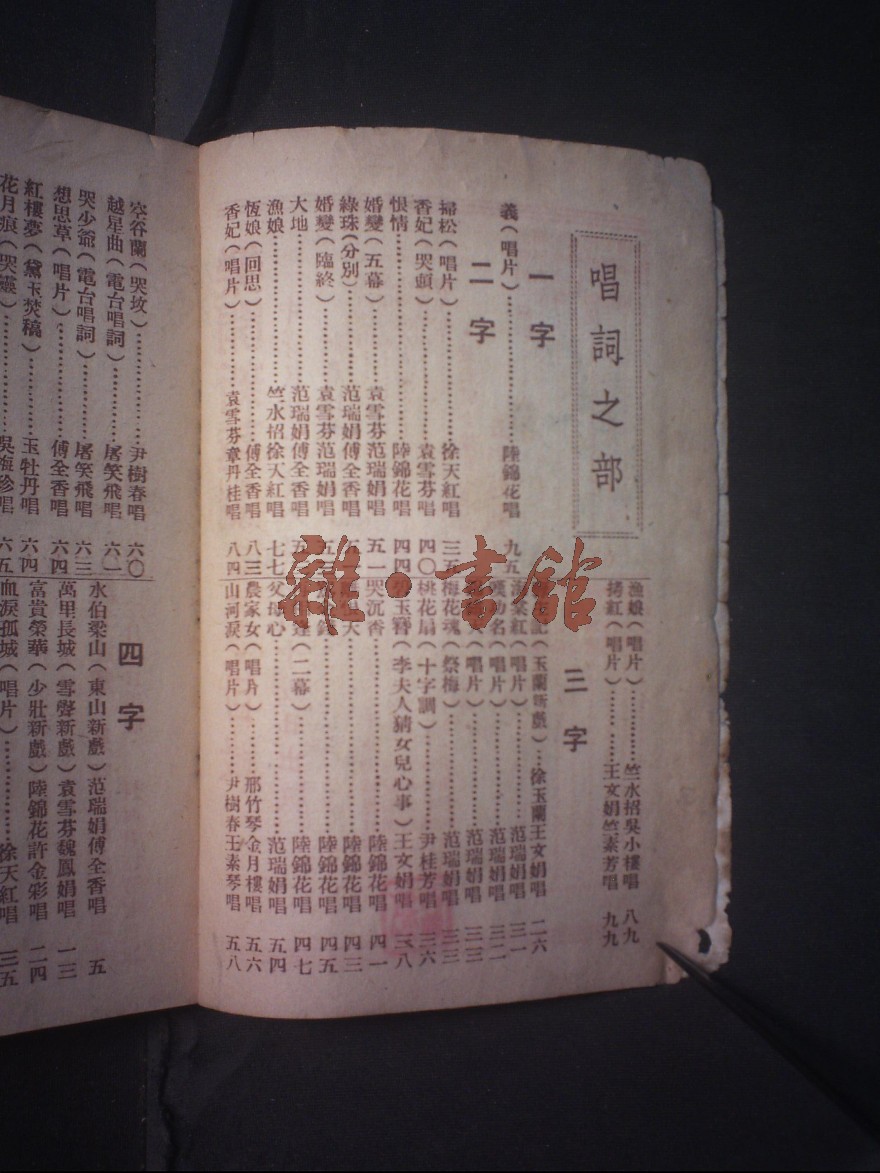 唱詞之部
一字
義(唱片)……陸錦花唱 九五
二字
掃松(唱片)……徐天紅唱 三五
香妃(哭頭)……袁雪芬唱 四〇
恨情……陸錦花唱 四四
婚變(五幕)……袁雪芬范瑞娟唱 五一
綠珠(分別)……范瑞娟傅全香唱
婚變(臨終)……袁雪芬范瑞娟唱
大地……范瑞娟傅全香唱
漁娘……竺水招徐天紅唱 七七
恆娘(回思)……傅全香唱 八三
香妃(唱片)……袁雪芬章丹桂唱 八四
漁娘(唱片)……竺水招吳小樓唱 八九
拷紅(唱片)……王文娟竺素芳唱 九九
三字
記(玉蘭新戲)…徐玉蘭王文娟唱 二六
紅(唱片)……范瑞娟唱 三一
名(唱片)……范瑞娟唱 三二
(唱片)……范瑞娟唱 三三
梅花魂(祭梅)……范瑞娟唱 三三
桃花扇(十字調)……尹桂芳唱 三六
玉簪(李夫人猜女兒心事)王文娟唱 三八
哭沉香……陸錦花唱 四一
陸錦花唱 四三
陸錦花唱 四五
(二幕)……陸錦花唱 四七
父母心……范瑞娟唱 五四
農家女(唱片)……邢竹琴金月樓唱 五六
山河淚(唱片)……尹樹春王素琴唱 五八
空谷蘭(哭坟)……尹樹春唱 六〇
越星曲(電台唱詞)……屠笑飛唱 六一
哭少爺(電台唱詞)……屠笑飛唱 六三
想思草(唱片)……傅全香唱 六四
紅樓夢(黛玉焚稿)……玉牡丹唱 六四
花月痕(哭靈)……吳梅珍唱 六五
四字
水伯梁山(東山新戲)范瑞娟傅全香唱 五
萬里長城(雪聲新戲)袁雪芬魏鳳娟唱 一三
富貴榮華(少壯新戲)陸錦花許金彩唱 二四
血淚孤城(唱片)……徐天紅唱 三五
雜·書館